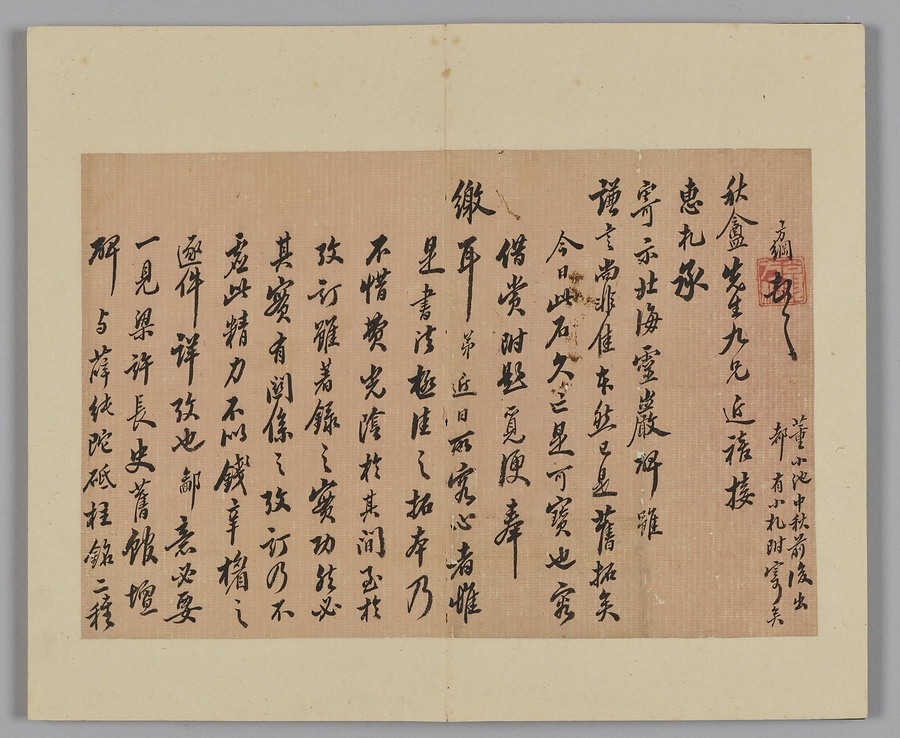 方綱
董小池中秋前後出
都有小札附寄矣
秋盦先生九兄近禧接
惠札承
寄示北海靈巖碑雖
謙言尚非佳本然已是舊拓矣
今日此石久亡是可寶也容
借賞附題覓便奉
繳耳弟近日所究心者惟
是書法極佳之拓本乃
不惜費光陰於其間至於
攷訂雖著錄之實功然必
其實有關係之攷訂乃不
虛此精力不似錢辛楣之
逐件詳攷也鄙意必要
一見梁許長史舊館壇
碑與薛純陀砥柱銘二種